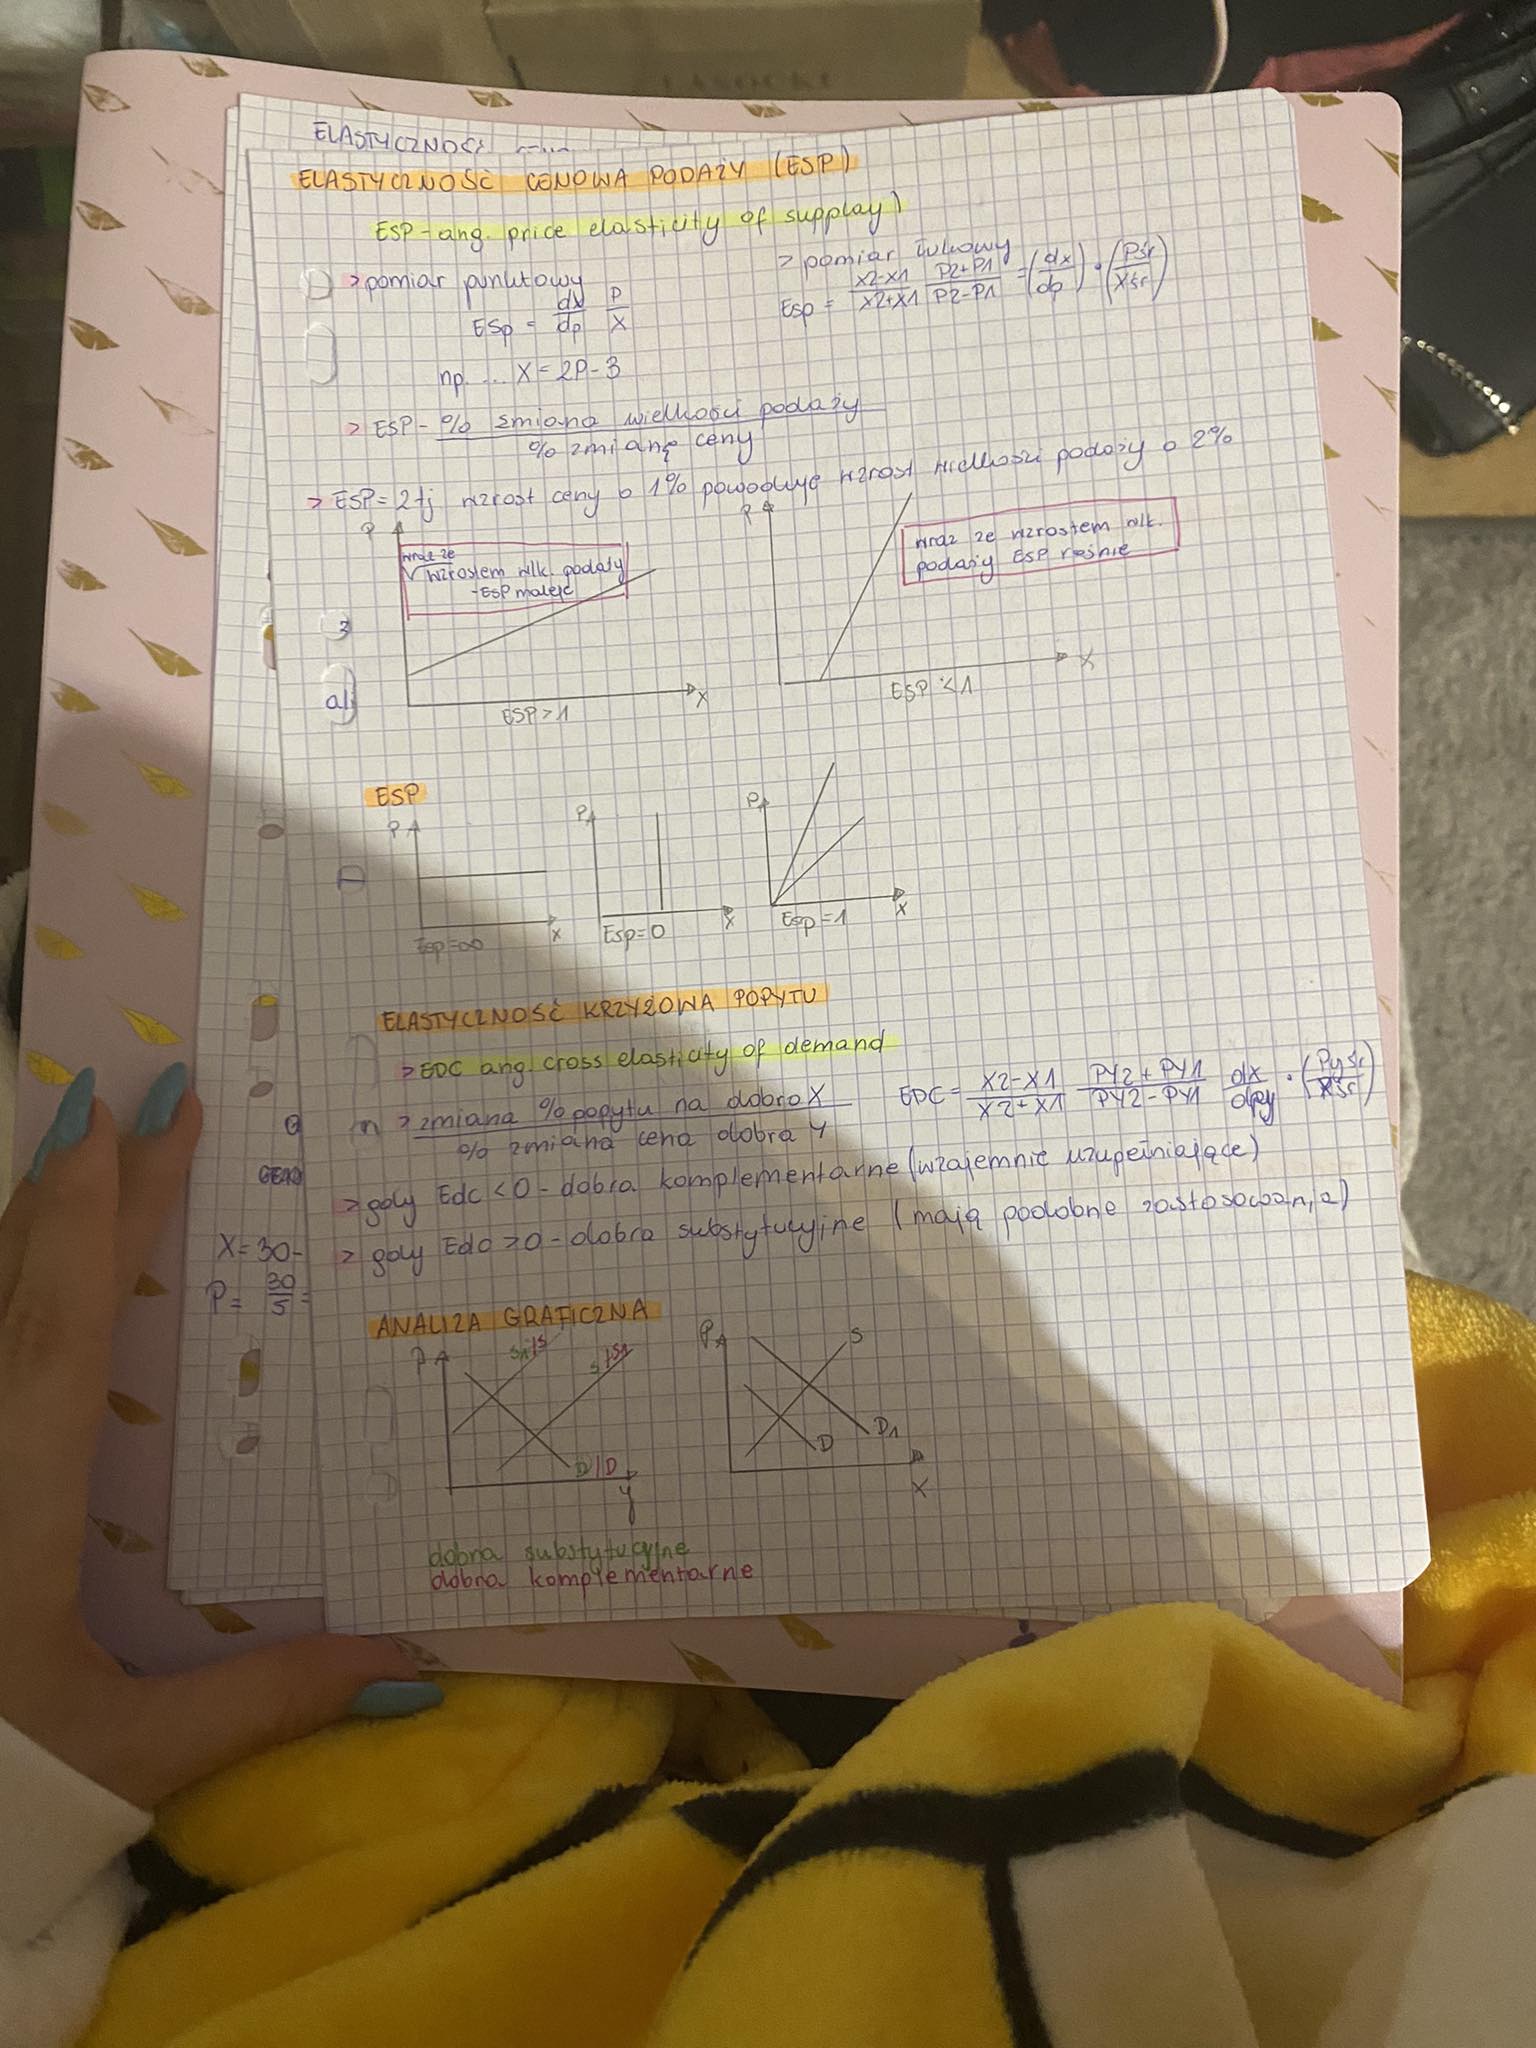 ELASTYCZNOŚĆ
ELASTYCZNOŚĆ CENOWA PODAŻY (ESP)
ESP - ang. price elasticity of supplay)
> pomiar punktowy
ESp = dx/dp P/X
> pomiar łukowy
Esp = X2-X1/X2+X1 P2+P1/P2-P1 = (dx/dp) • (Pśr/Xśr)
np. ... X = 2P - 3
> ESP - % zmiana wielkości podaży
% zmianę ceny
> ESP = 2 tj wzrost ceny o 1% powoduje wzrost wielkości podaży o 2%
P
wraz ze
wzrostem wlk. podaży
- ESP maleje
X
ESP > 1
P
wraz ze wzrostem wlk.
podaży ESP rośnie
X
ESP < 1
3
a)
ESP
P
X
Esp = ∞
P
X
Esp = 0
P
X
Esp = 1
ELASTYCZNOŚĆ KRZYŻOWA POPYTU
> EDC ang. cross elasticity of demand
> zmiana % popytu na dobro X
% zmiana cena dobra Y
EDC = X2-X1/X2+X1 PY2+PY1/PY2-PY1 dx/dpy • (Pyśr/Xśr)
> gdy Edc < 0 - dobra komplementarne (wzajemnie uzupełniające)
> gdy Edc > 0 - dobra substytucyjne (mają podobne zastosowania)
X = 30 -
P = 30/5 =
ANALIZA GRAFICZNA
P
S1/S
S/S1
D/D
Y
P
S
D
D1
X
dobra substytucyjne
dobra komplementarne